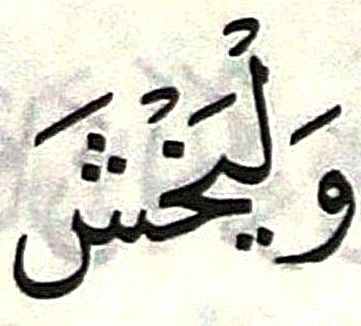 وَلْيَخْشَ